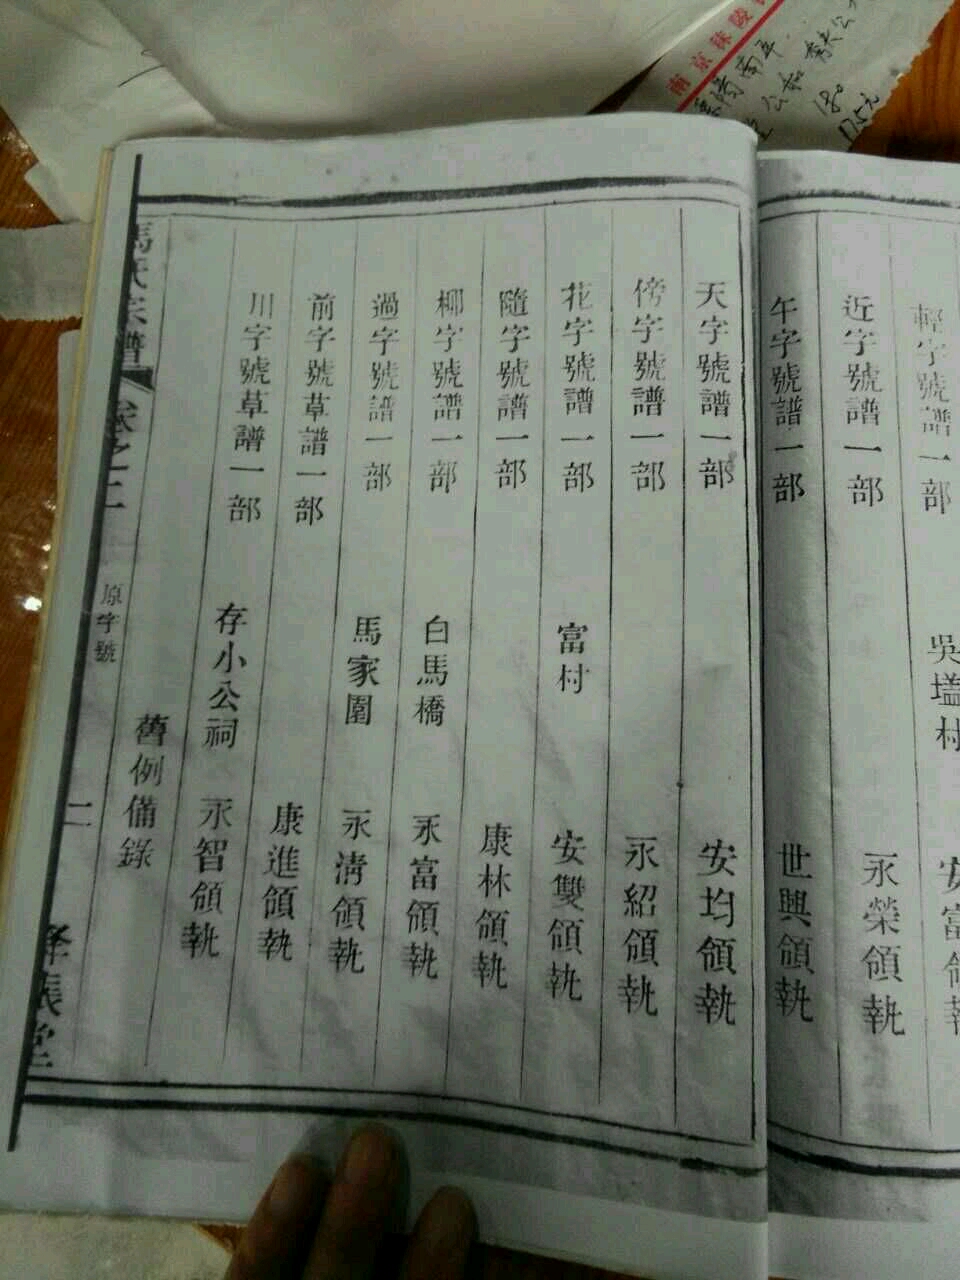 輕字號譜一部 吳塧村 安富領執
近字號譜一部 永榮領執
午字號譜一部 世興領執
天字號譜一部 安均領執
傍字號譜一部 永紹領執
花字號譜一部 富村 安雙領執
隨字號譜一部 康林領執
柳字號譜一部 白馬橋 永富領執
過字號譜一部 馬家圍 永清領執
前字號草譜一部 康進領執
川字號草譜一部 存小公祠 永智領執
舊例備錄
馬氏宗譜 卷之二 原字號 二 絳帳堂
南京秣陵
180
175元